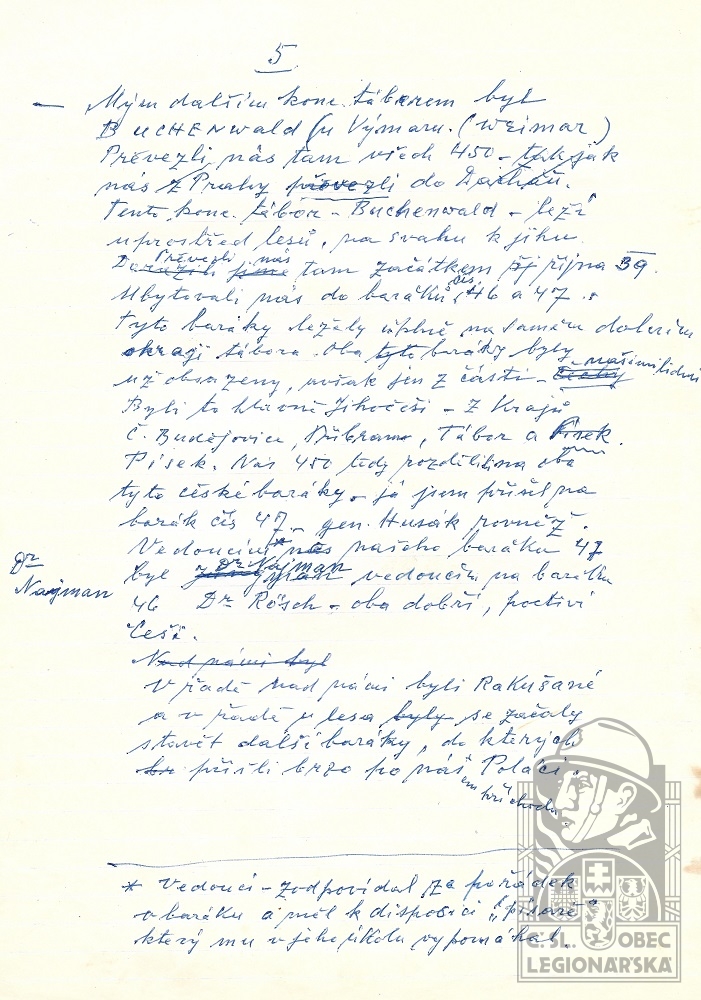 5
— Mým dalším konc. táborem byl
BUCHENWALD (u Výmaru. (WEIMAR)
Převezli nás tam všech 450 – tak jak
nás z Prahy převezli do Dachau.
Tento konc. tábor – Buchenwald – leží
uprostřed lesů, na svahu k jihu.
Převezli nás
Dorazili jsme tam začátkem října 39.
Ubytovali nás do baráků čís 46 a 47.
Tyto baráky ležely úplně na samém dolením
okraji tábora. Oba tyto baráky byly
už obsazeny, avšak jen z části – Čechy našimi lidmi
Byli to hlavně Jihočeši – z Krajů
Č. Budějovice, Příbram, Tábor a Písek.
Písek. Nás 450 tedy rozdělili na oba
tyto české baráky – já jsem přišel na
barák čís 47. – gen. Husák rovněž.
Vedoucím * našeho baráku 47
Dr Najman
byl Dr Najman vedoucím na baráku
46 Dr Rösch – oba dobří, poctiví
Češi.
Nad námi byl
V řadě nad námi byli Rakušané
a v řadě u lesa byly se začaly
stavět další baráky, do kterých
přišli brzo po našem příchodu Poláci.
* Vedoucí – zodpovídal za pořádek
v baráku a měl k disposici „písaře“
který mu v jeho úkolu vypomáhal.
Č. SL. OBEC
LEGIONÁŘSKÁ